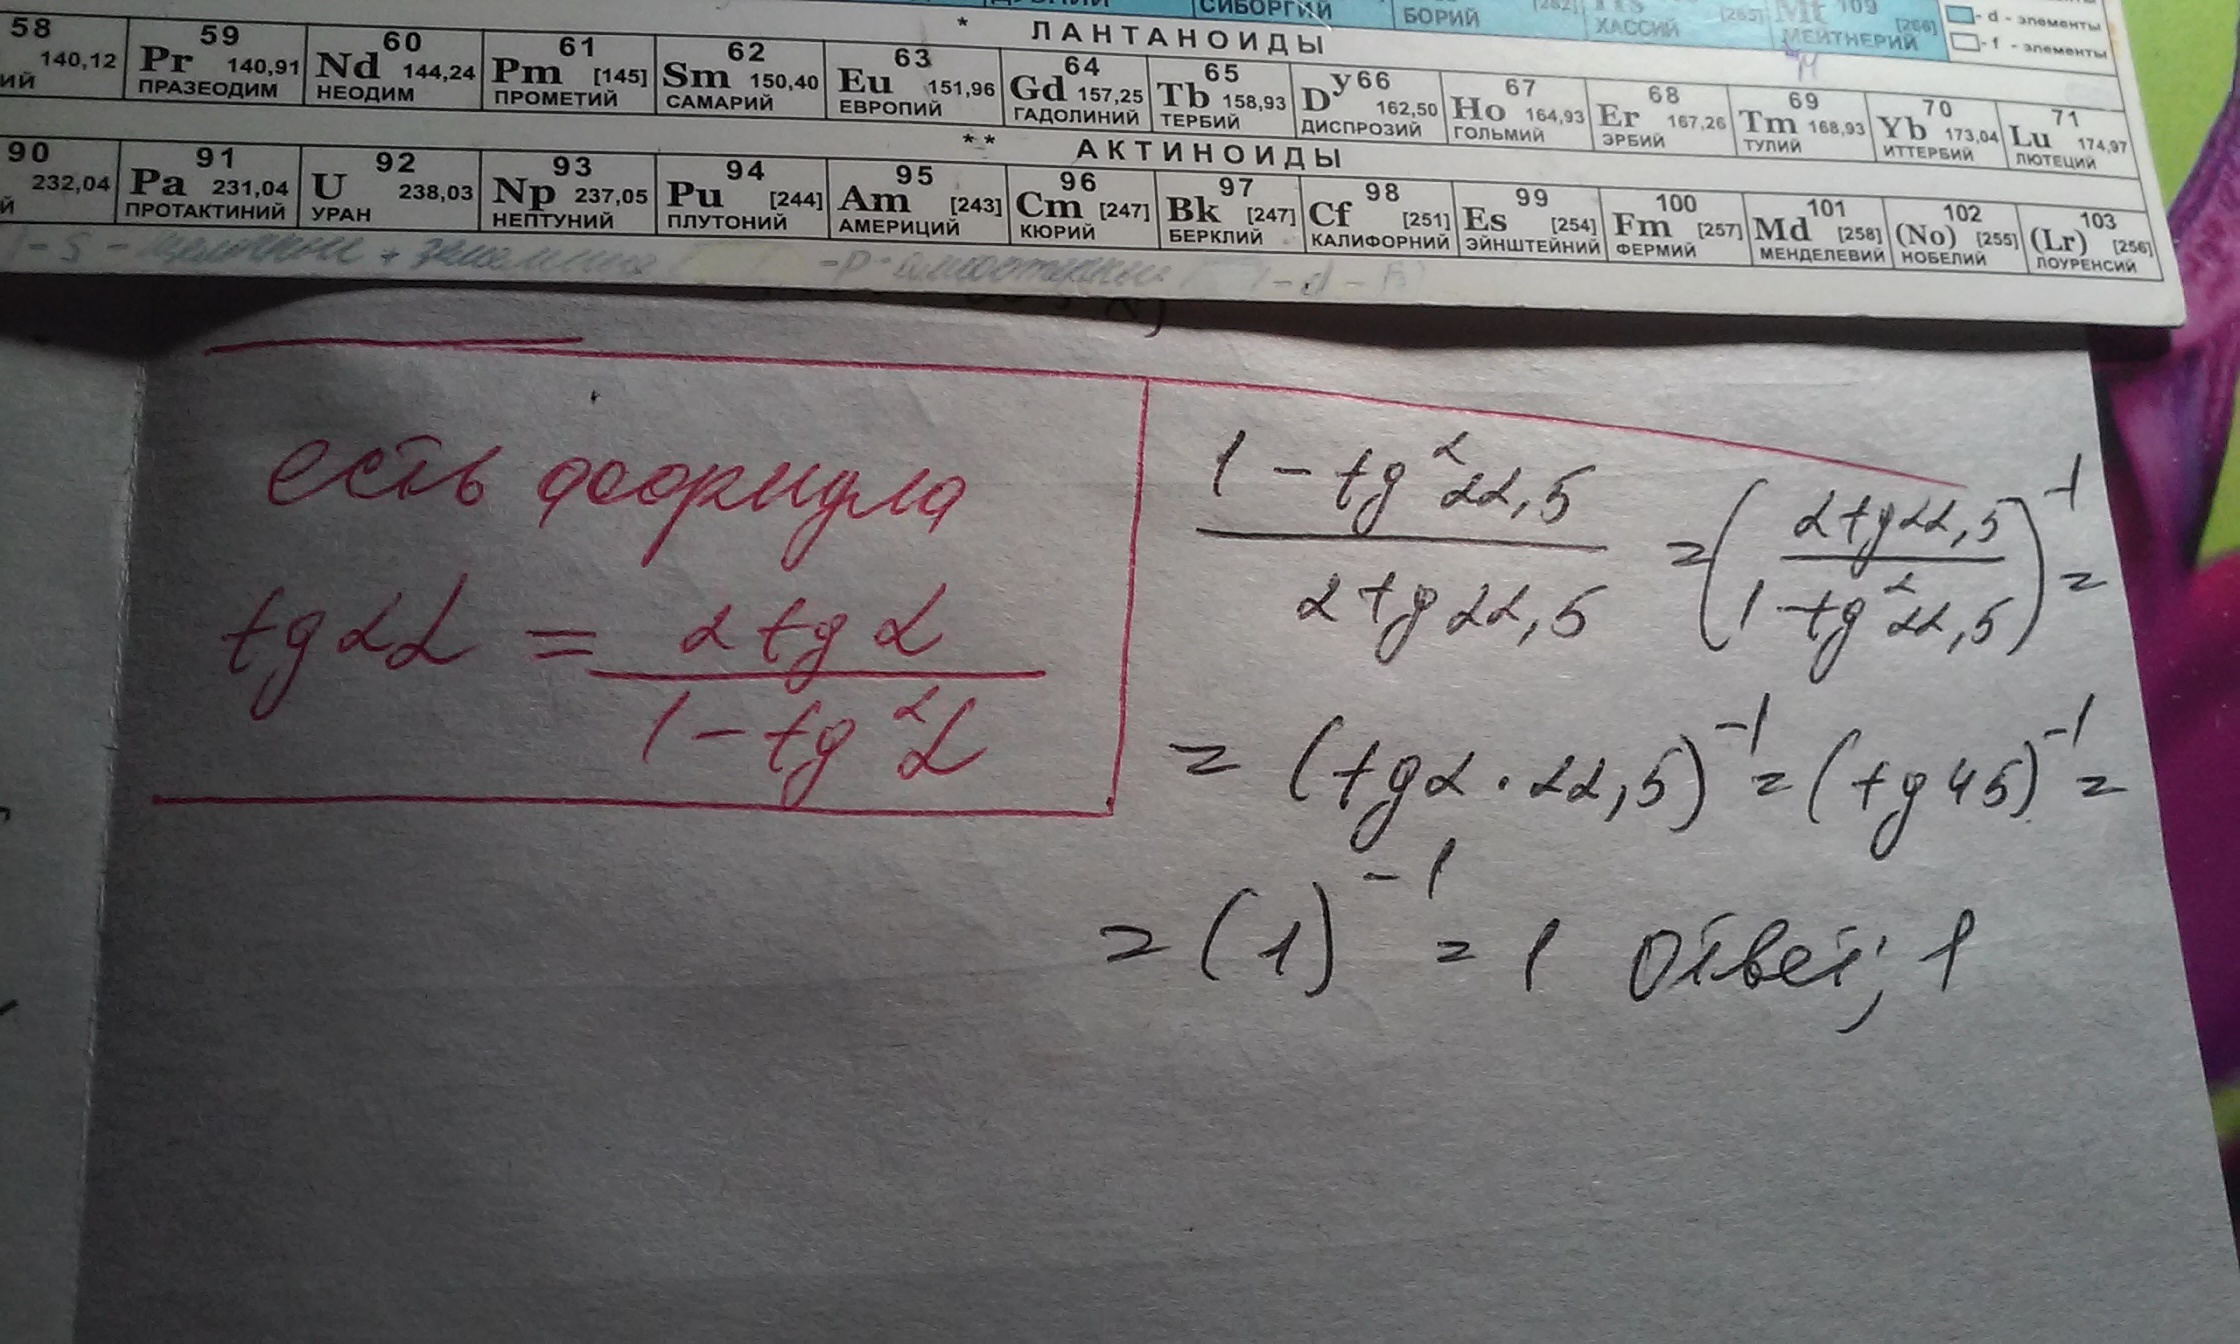 СИБОРГИЙ БОРИЙ [262] ХАССИЙ [265] Mt 109 МЕЙТНЕРИЙ [266]
- d - элементы
- f - элементы
* ЛАНТАНОИДЫ
58 140,12 ИЙ
59 Pr 140,91 ПРАЗЕОДИМ
60 Nd 144,24 НЕОДИМ
61 Pm [145] ПРОМЕТИЙ
62 Sm 150,40 САМАРИЙ
63 Eu 151,96 ЕВРОПИЙ
64 Gd 157,25 ГАДОЛИНИЙ
65 Tb 158,93 ТЕРБИЙ
Dy 66 162,50 ДИСПРОЗИЙ
67 Ho 164,93 ГОЛЬМИЙ
68 Er 167,26 ЭРБИЙ
69 Tm 168,93 ТУЛИЙ
70 Yb 173,04 ИТТЕРБИЙ
71 Lu 174,97 ЛЮТЕЦИЙ
** АКТИНОИДЫ
90 232,04 Й
91 Pa 231,04 ПРОТАКТИНИЙ
92 U 238,03 УРАН
93 Np 237,05 НЕПТУНИЙ
94 Pu [244] ПЛУТОНИЙ
95 Am [243] АМЕРИЦИЙ
96 Cm [247] КЮРИЙ
97 Bk [247] БЕРКЛИЙ
98 Cf [251] КАЛИФОРНИЙ
99 Es [254] ЭЙНШТЕЙНИЙ
100 Fm [257] ФЕРМИЙ
101 Md [258] МЕНДЕЛЕВИЙ
102 (No) [255] НОБЕЛИЙ
103 (Lr) [256] ЛОУРЕНСИЙ
есть формула
tg2α = 2tgα / (1 - tg²α)
(1 - tg²22,5) / (2tg22,5) = (2tg22,5 / (1 - tg²22,5))⁻¹ =
= (tg2·22,5)⁻¹ = (tg45)⁻¹ =
= (1)⁻¹ = 1 Ответ; 1